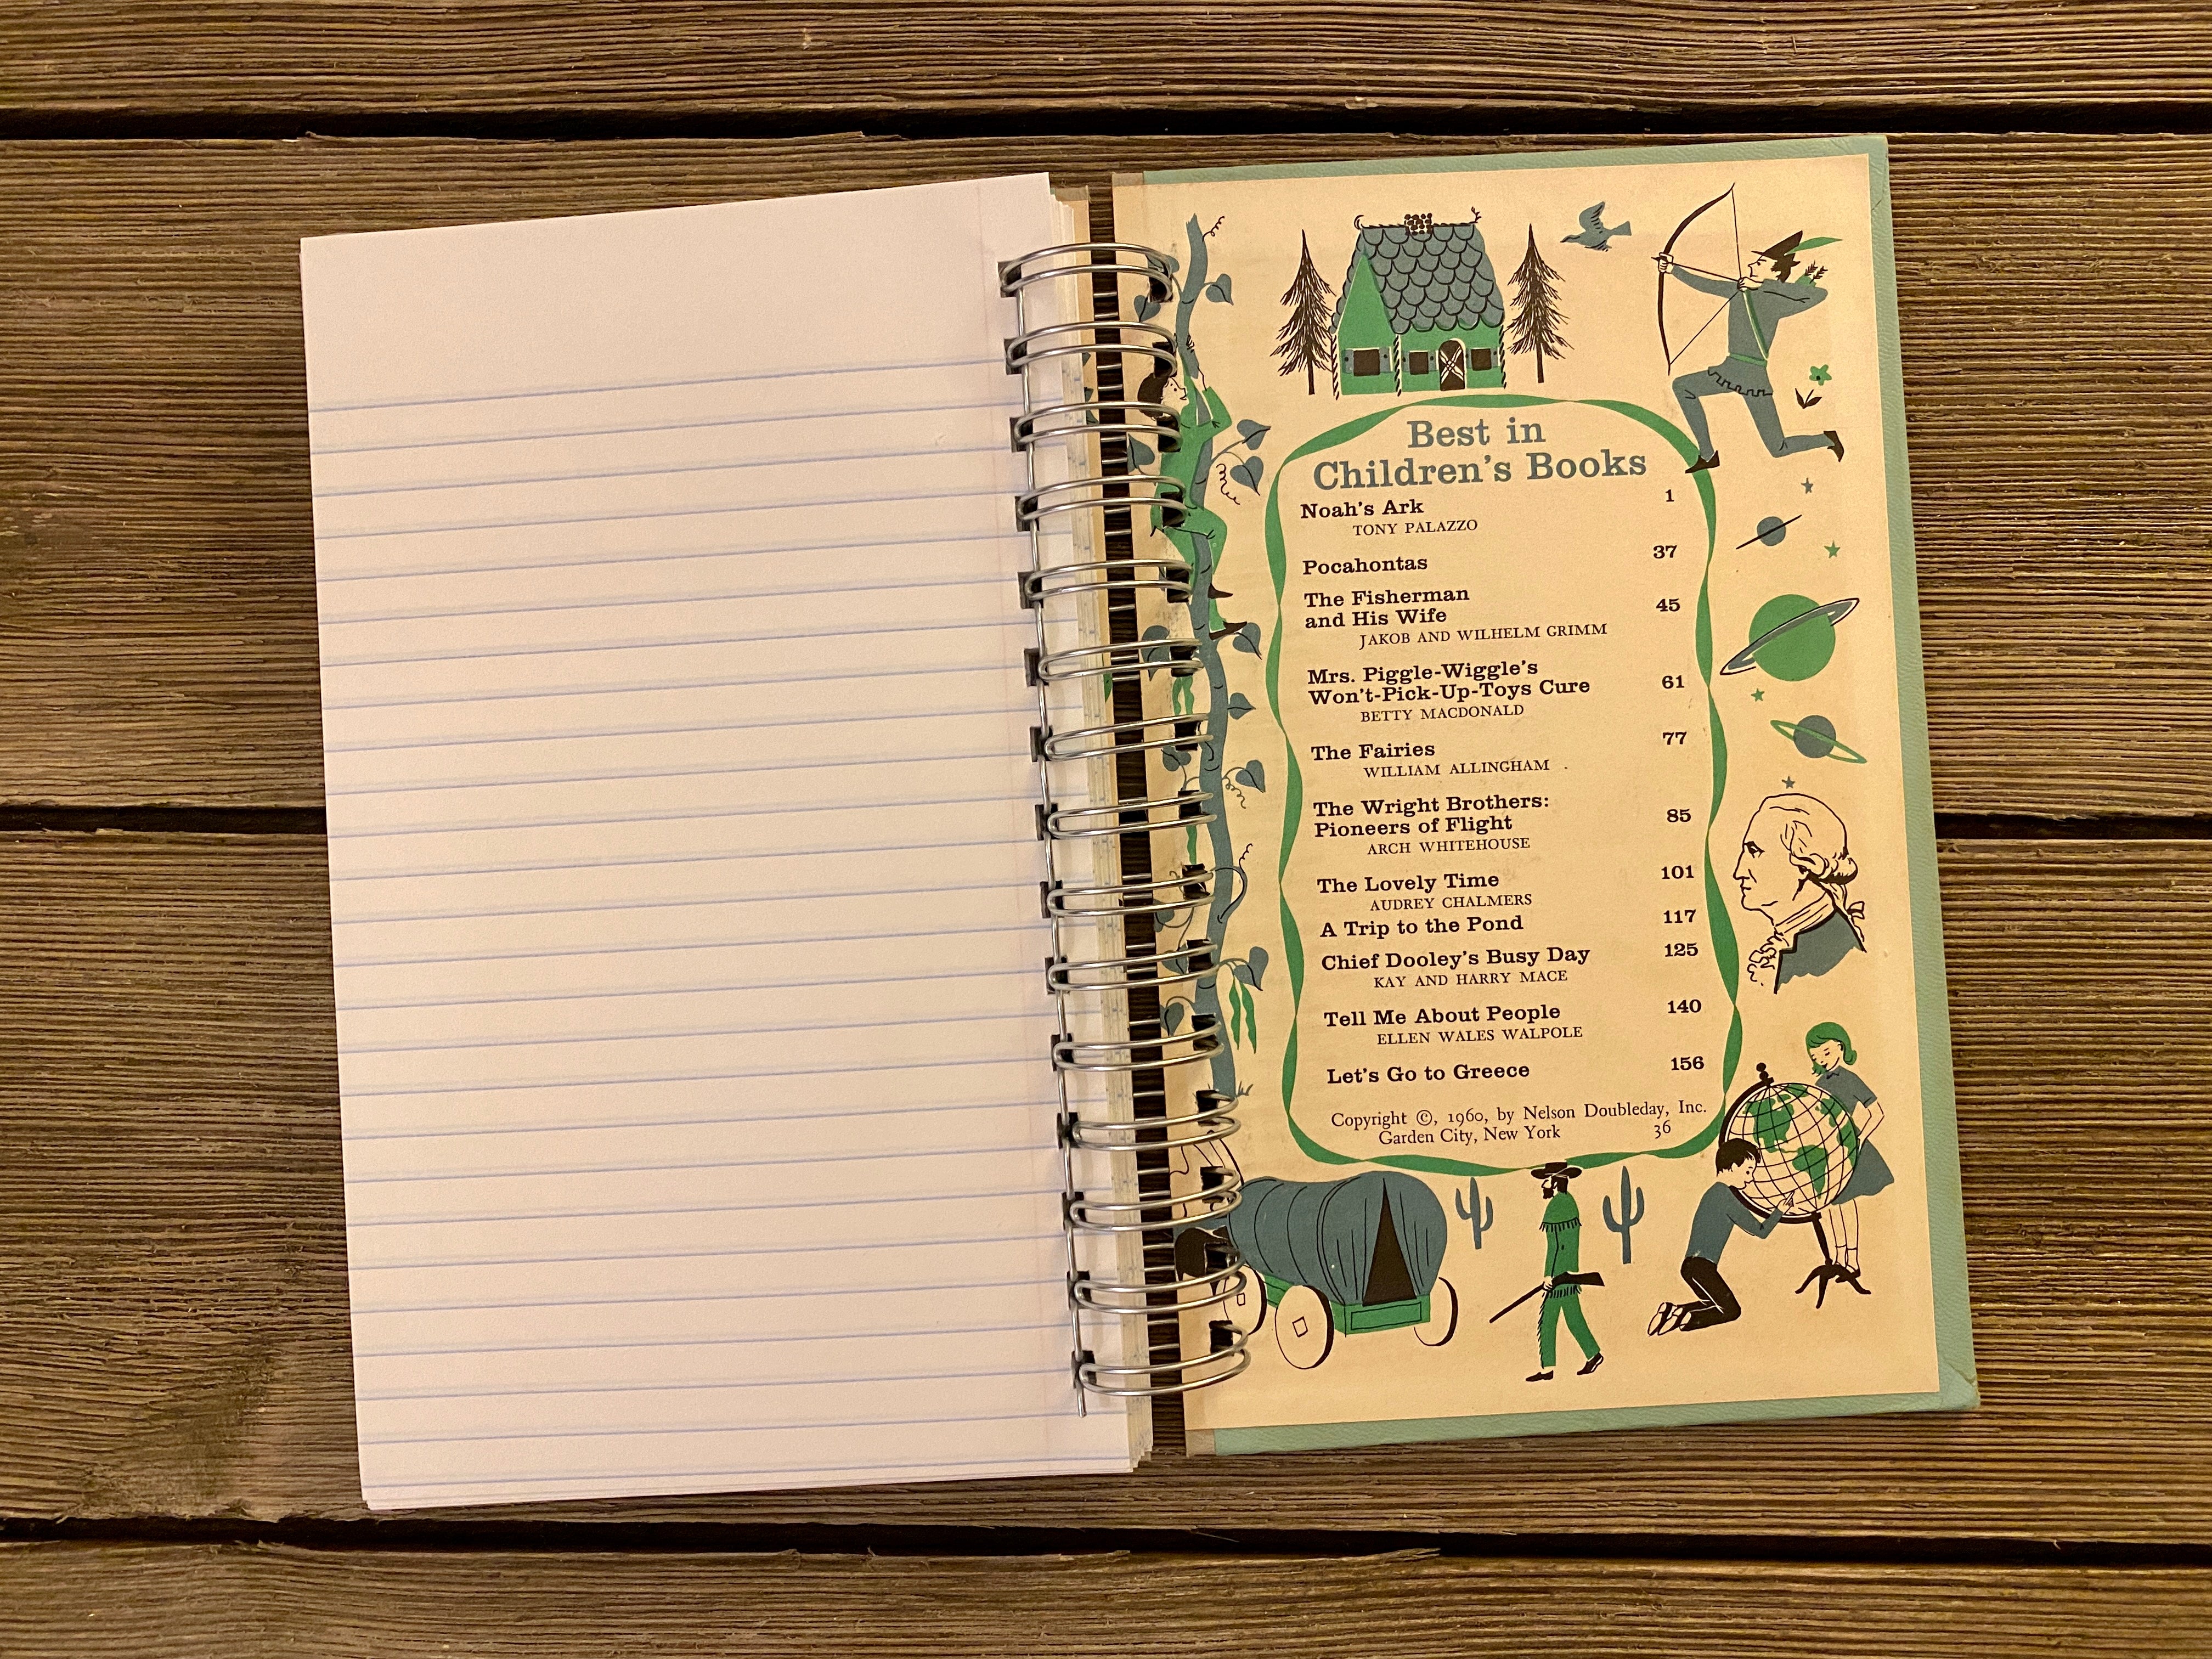 Best in
Children's Books
Noah's Ark 1
TONY PALAZZO
Pocahontas 37
The Fisherman
and His Wife 45
JAKOB AND WILHELM GRIMM
Mrs. Piggle-Wiggle's
Won't-Pick-Up-Toys Cure 61
BETTY MACDONALD
The Fairies 77
WILLIAM ALLINGHAM
The Wright Brothers:
Pioneers of Flight 85
ARCH WHITEHOUSE
The Lovely Time 101
AUDREY CHALMERS
A Trip to the Pond 117
Chief Dooley's Busy Day 125
KAY AND HARRY MACE
Tell Me About People 140
ELLEN WALES WALPOLE
Let's Go to Greece 156
Copyright ©, 1960, by Nelson Doubleday, Inc.
Garden City, New York 36